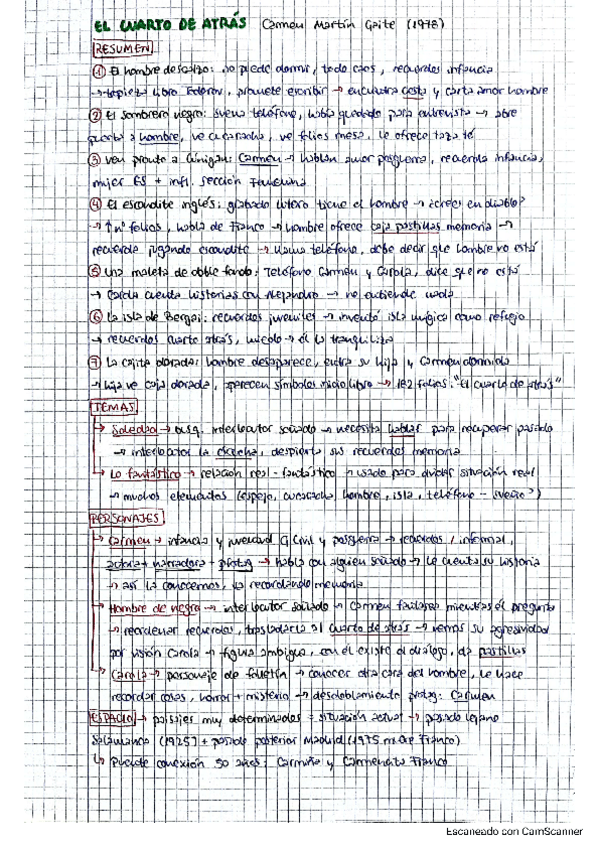 EL CUARTO DE ATRÁS Carmen Martín Gaite (1978)
RESUMEN
① El hombre descalzo: no puede dormir, todo caos, recuerdos infancia
→ tropieza libro Todorov, promete escribir → encuentra cesta y carta amor hombre
② El sombrero negro: suena teléfono, había quedado para entrevista → abre
puerta a hombre, ve cucaracha, ve folios mesa, le ofrece taza té
③ Ven pronto a Cúnigan: Carmen → hablan amor posguerra, recuerda infancia,
mujer ES + infl. sección Femenina
④ El escondite inglés: grabado Lutero tiene el hombre → ¿crees en diablo?
→ ↑ nº folios, habla de Franco → hombre ofrece caja pastillas memoria →
recuerda jugando escondite → llama teléfono, debe decir que hombre no está
⑤ Una maleta de doble fondo: Teléfono Carmen y Carola, dice que no está
→ Carola cuenta historias con Alejandro → no entiende nada
⑥ La isla de Bergai: recuerdos juveniles → inventó isla mágica como refugio
→ recuerdos cuarto atrás, miedo → él la tranquiliza
⑦ La cajita dorada: hombre desaparece, entra su hija y Carmen dormida
→ hija ve caja dorada, aparecen símbolos inicio libro → 182 folios: "El cuarto de atrás"
TEMAS
→ Soledad → búsq. interlocutor soñado → necesita hablar para recuperar pasado
→ interlocutor la escucha, despierta sus recuerdos memoria
→ Lo fantástico → relación real - fantástico → usado para olvidar situación real
→ muchos elementos (espejo, cucaracha, hombre, isla, teléfono - sueño?)
PERSONAJES
→ Carmen → infancia y juventud G.Civil y posguerra → recuerdos / informal,
autora + narradora + protag → habla con alguien soñado → le cuenta su historia
→ así la conocemos, va recordando memoria
→ Hombre de negro → interlocutor soñado → Carmen mientras él pregunta
→ reordenar recuerdos, trasladarla al cuarto de atrás → vemos su agresividad
por visión Carola → figura ambigua, con él existe el diálogo, da pastillas
→ Carola → personaje de folletín → conocer otra cara del hombre, le hace
recordar cosas, horror + misterio → desdoblamiento protag: Carmen
ESPACIO → paisajes muy determinados = situación actual → pasado lejano
Salamanca (1925) + pasado posterior Madrid (1975 m. Franco)
↳ Puente conexión 50 años: Carmiña y Carmencita Franco
Escaneado con CamScanner